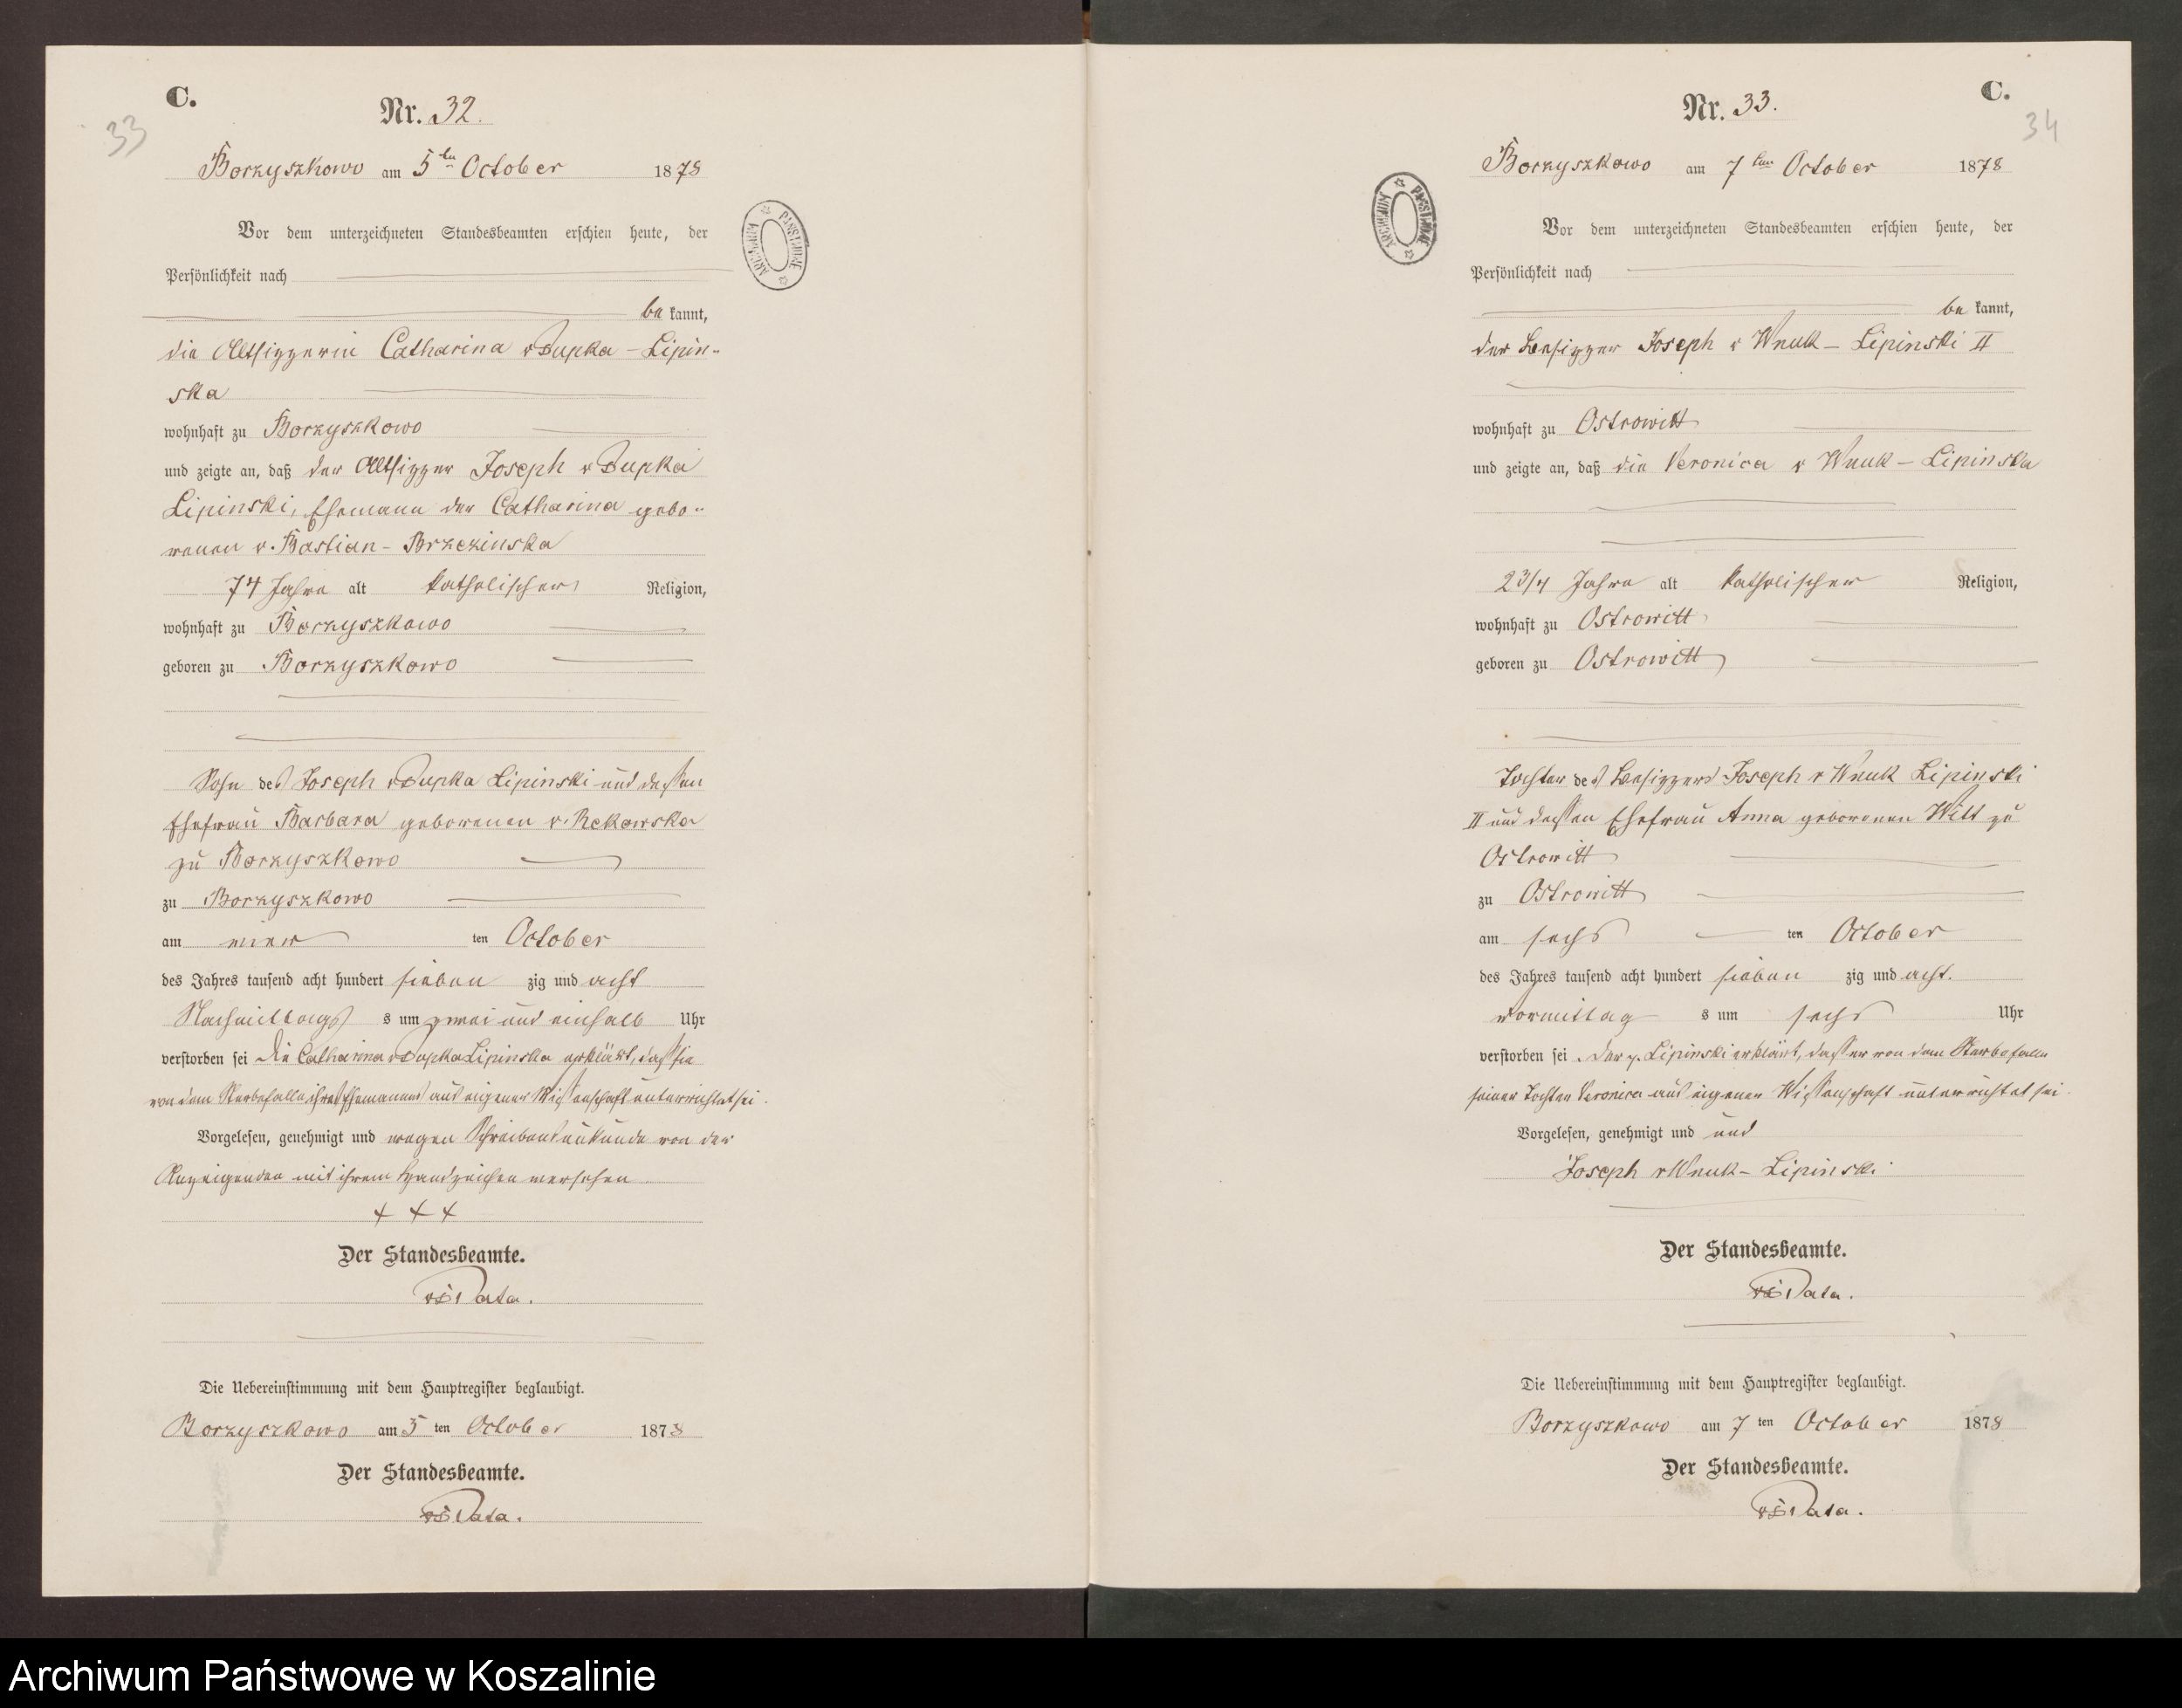 C.
Nr. 32.
33
Borzyszkowo am 5ten October 1878
Vor dem unterzeichneten Standesbeamten erschien heute, der
Persönlichkeit nach
be kannt,
die Altsitzerin Catharina v Dupka - Lipin-
ska
wohnhaft zu Borzyszkowo
und zeigte an, daß der Altsitzer Joseph v Dupka
Lipinski, Ehemann der Catharina gebo-
renen v. Bastian - Brzezinska
74 Jahre alt katholischer Religion,
wohnhaft zu Borzyszkowo
geboren zu Borzyszkowo
Sohn des Joseph v Dupka Lipinski und dessen
Ehefrau Barbara geborenen v. Rekowska
zu Borzyszkowo
zu Borzyszkowo
am vier ten October
des Jahres tausend acht hundert sieben zig und acht
Nachmittags s um zwei und einhalb Uhr
verstorben sei Die Catharina v Dupka Lipinska erklärt, daß sie
von dem Sterbefalle ihres Ehemannes aus eigener Wissenschaft unterrichtet sei.
Vorgelesen, genehmigt und wegen Schreibensunkunde von der
Anzeigenden mit ihrem Handzeichen versehen
+ + +
Der Standesbeamte.
Die Uebereinstimmung mit dem Hauptregister beglaubigt.
Borzyszkowo am 5 ten October 1878
Der Standesbeamte.
C.
Nr. 33.
34
Borzyszkowo am 7ten October 1878
Vor dem unterzeichneten Standesbeamten erschien heute, der
Persönlichkeit nach
be kannt,
der Besitzer Joseph v Wnuk - Lipinski II
wohnhaft zu Ostrowitt
und zeigte an, daß die Veronica v Wnuk - Lipinska
2 3/4 Jahre alt katholischer Religion,
wohnhaft zu Ostrowitt
geboren zu Ostrowitt
Tochter des Besitzers Joseph v Wnuk Lipinski
II und dessen Ehefrau Anna geborenen Witt zu
Ostrowitt
zu Ostrowitt
am sechs ten October
des Jahres tausend acht hundert sieben zig und acht.
vormittag s um sechs Uhr
verstorben sei. Der p. Lipinski erklärt, dass er von dem Sterbefalle
seiner Tochter Veronica aus eigener Wissenschaft unterrichtet sei.
Vorgelesen, genehmigt und und
Joseph v Wnuk - Lipinski
Der Standesbeamte.
Die Uebereinstimmung mit dem Hauptregister beglaubigt.
Borzyszkowo am 7 ten October 1878
Der Standesbeamte.
Archiwum Państwowe w Koszalinie